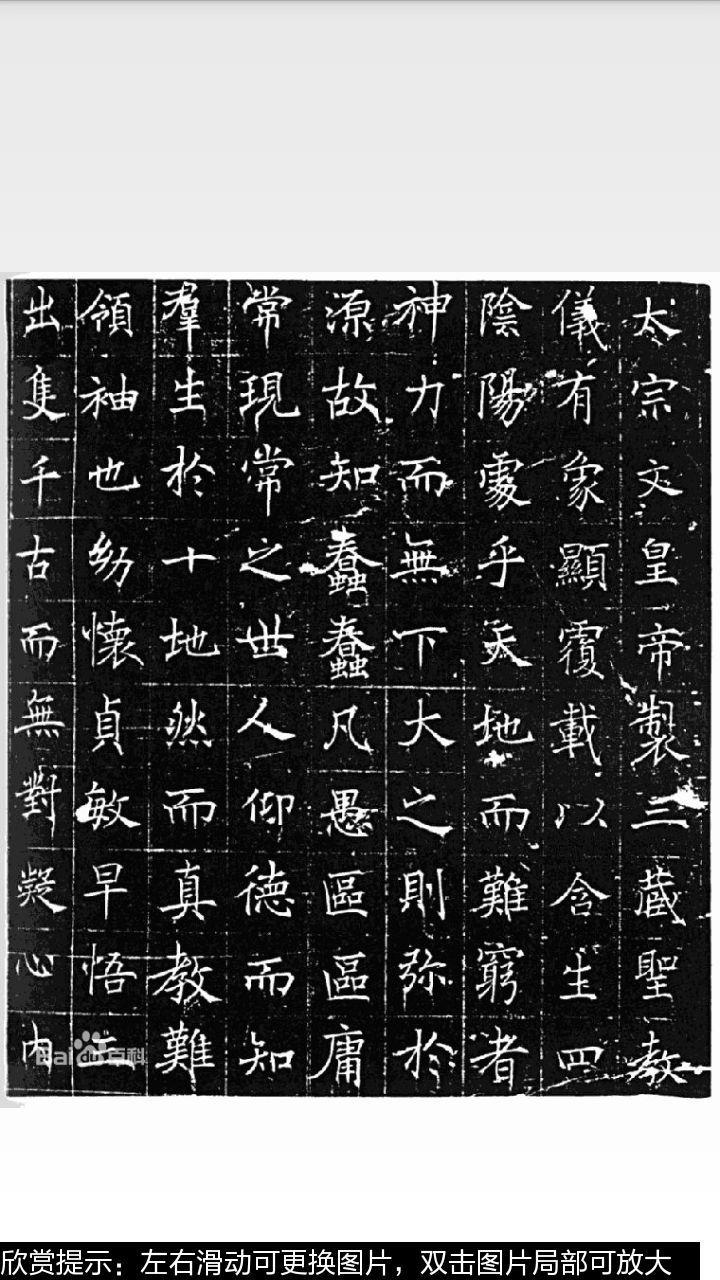 太宗文皇帝製三藏聖教
儀有象顯覆載以含生四
陰陽處乎天地而難窮者
神力而無下大之則弥於
源故知蠢蠢凡愚區區庸
常現常之世人仰德而知
羣生於十地然而真教難
領袖也幼懷貞敏早悟三
出隻千古而無對凝心内
Bai度百科
欣赏提示：左右滑动可更换图片，双击图片局部可放大